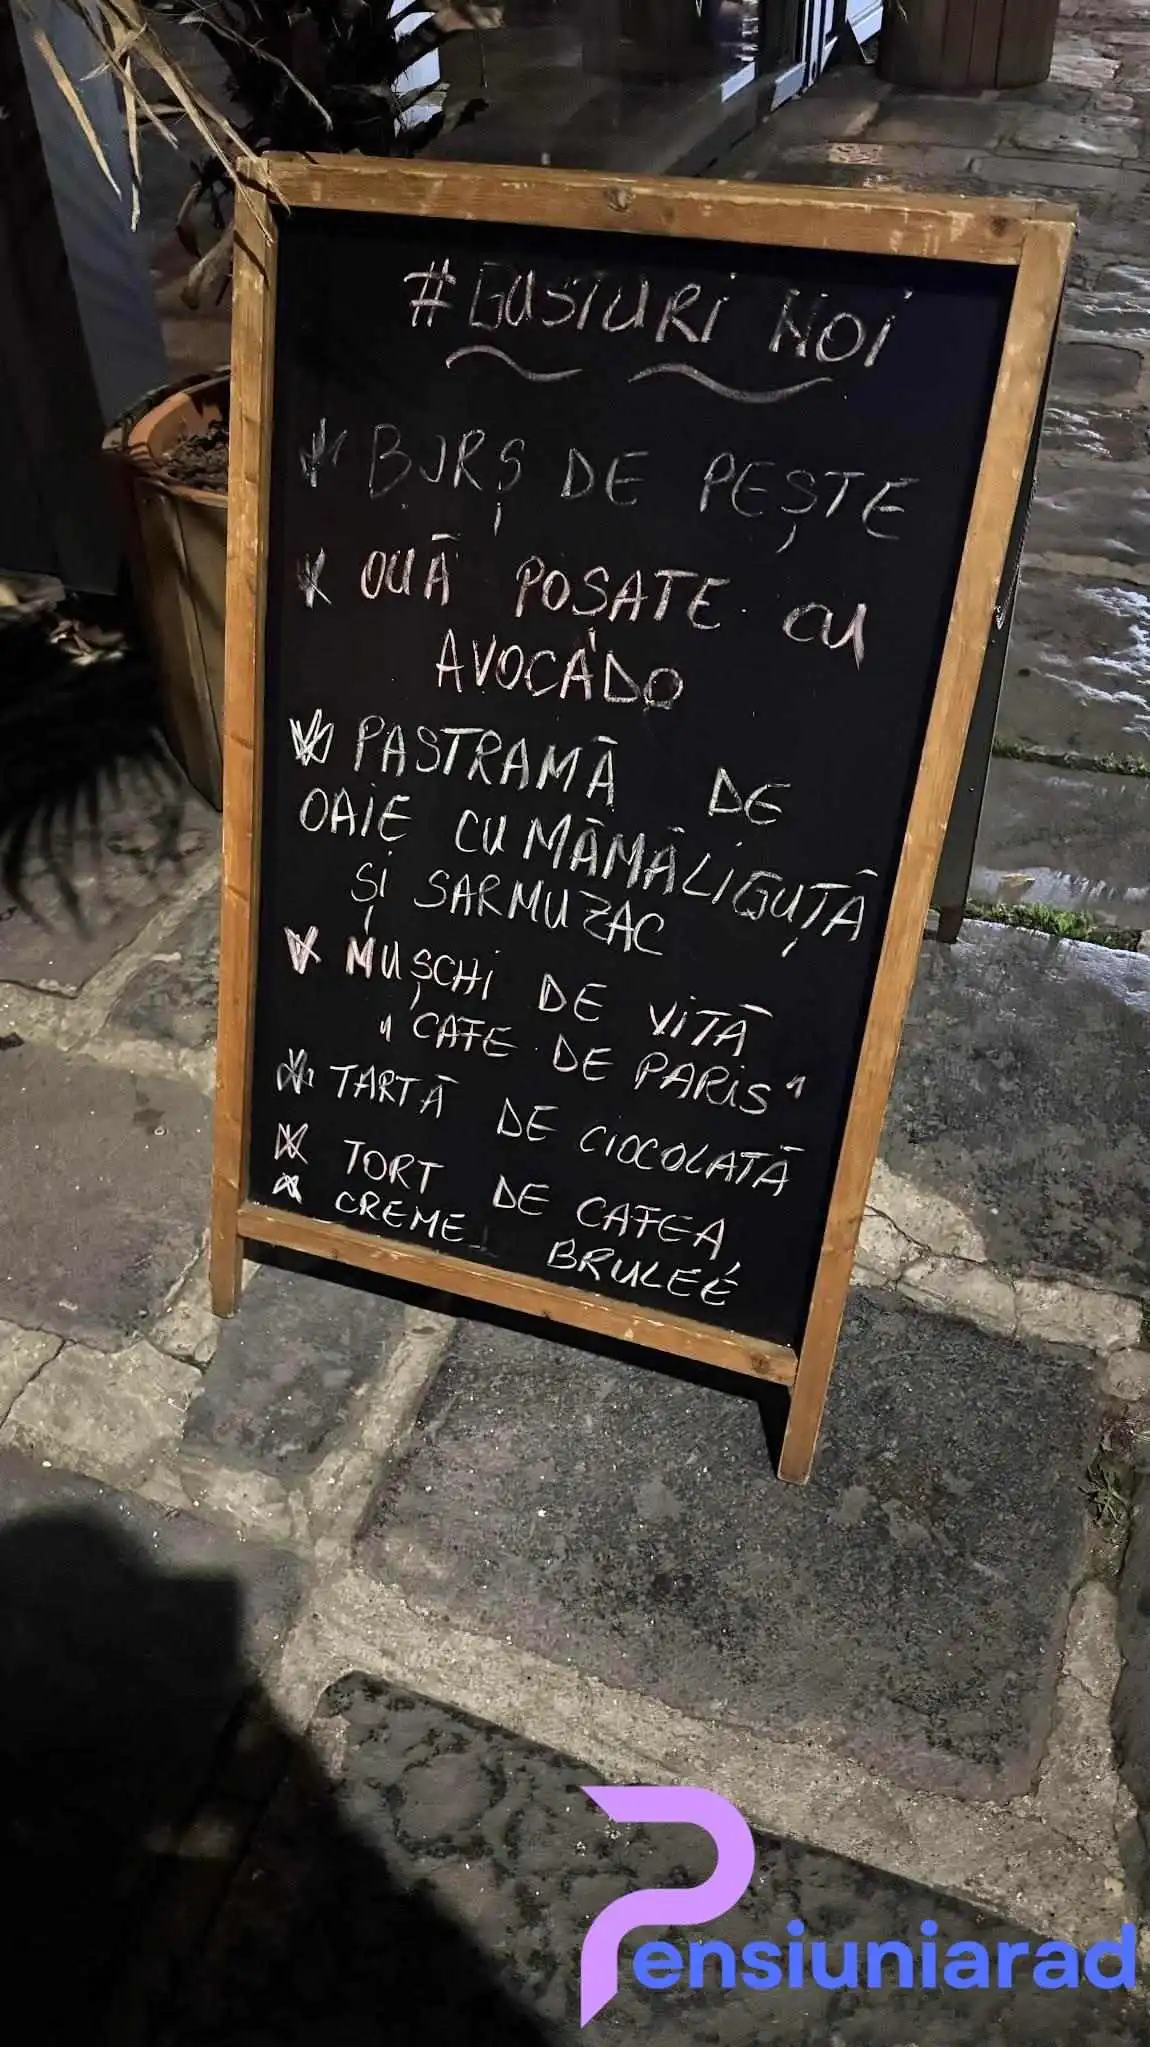 #GUSTURI NOI
* BORȘ DE PEȘTE
* OUĂ POȘATE CU
AVOCADO
* PASTRAMĂ DE
OAIE CU MĂMĂLIGUȚĂ
ȘI SARMUZAC
* MUȘCHI DE VITĂ
"CAFE DE PARIS"
* TARTĂ DE CIOCOLATĂ
* TORT DE CAFEA
* CREME BRULEÉ
Pensiuniarad